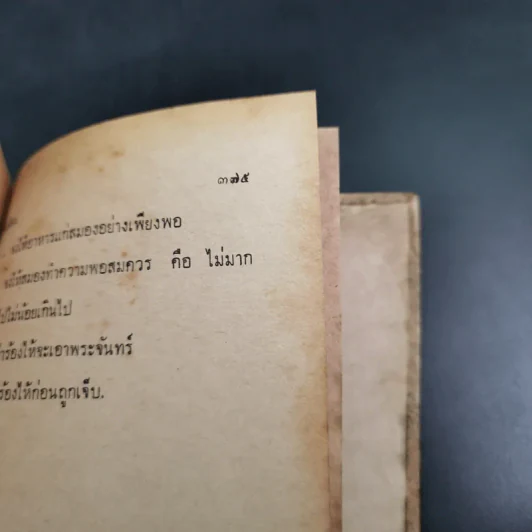 ๓๗๕
จงให้อาหารแก่สมองอย่างเพียงพอ
จงให้สมองทำความพอสมควร คือ ไม่มาก
ไปไม่น้อยเกินไป
ร้องไห้จะเอาพระจันทร์
ร้องไห้ก่อนถูกเจ็บ.